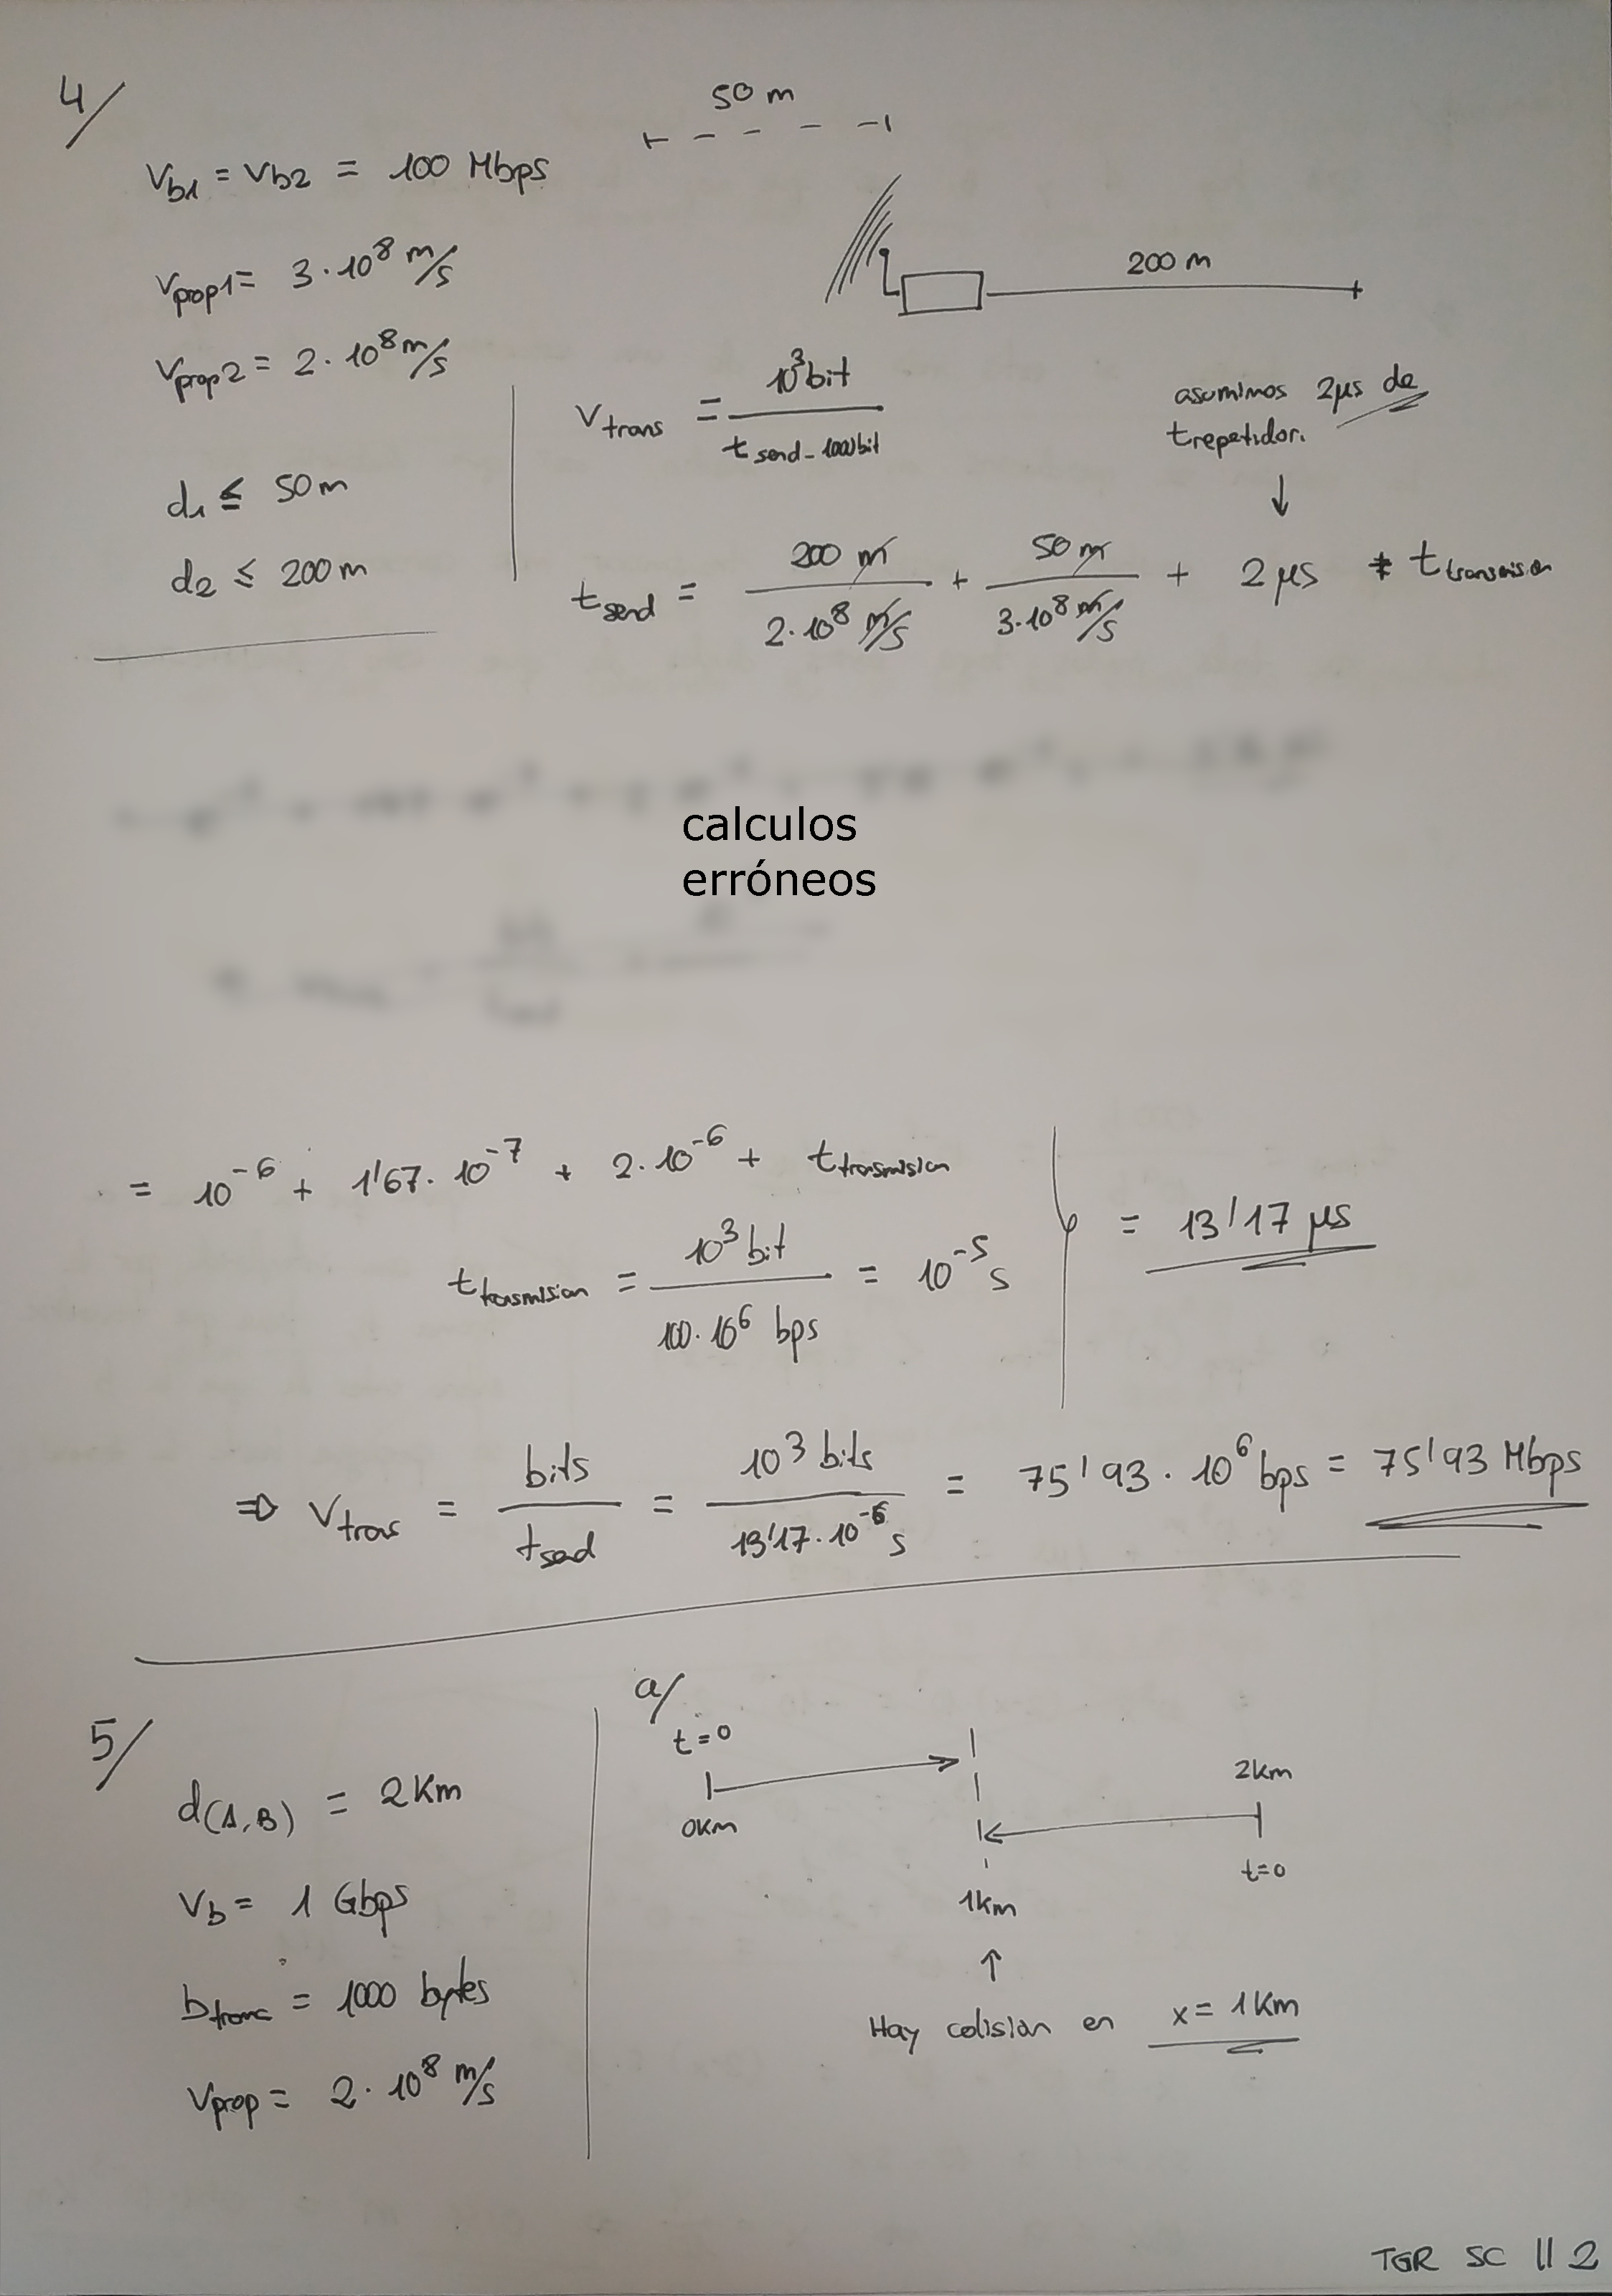 4/
50 m
V_b1 = V_b2 = 100 Mbps
V_prop1 = 3·10^8 m/s
200 m
V_prop2 = 2·10^8 m/s
V_trans = 10^3 bit / t_send-1000bit
asumimos 2µs de
t repetidor.
↓
d1 ≤ 50m
d2 ≤ 200m
t_send = 200 m / 2·10^8 m/s + 50 m / 3·10^8 m/s + 2µs + t_transmision
calculos
erróneos
= 10^-6 + 1'67·10^-7 + 2·10^-6 + t_transmision
t_transmision = 10^3 bit / 100·10^6 bps = 10^-5 s
= 13'17 µs
⇒ V_trans = bits / t_send = 10^3 bits / 13'17·10^-6 s = 75'93·10^6 bps = 75'93 Mbps
5/
d(A,B) = 2Km
V_b = 1 Gbps
b_trama = 1000 bytes
V_prop = 2·10^8 m/s
a/
t=0
0Km
2km
t=0
1km
↑
Hay colisión en x = 1Km
TGR SC || 2